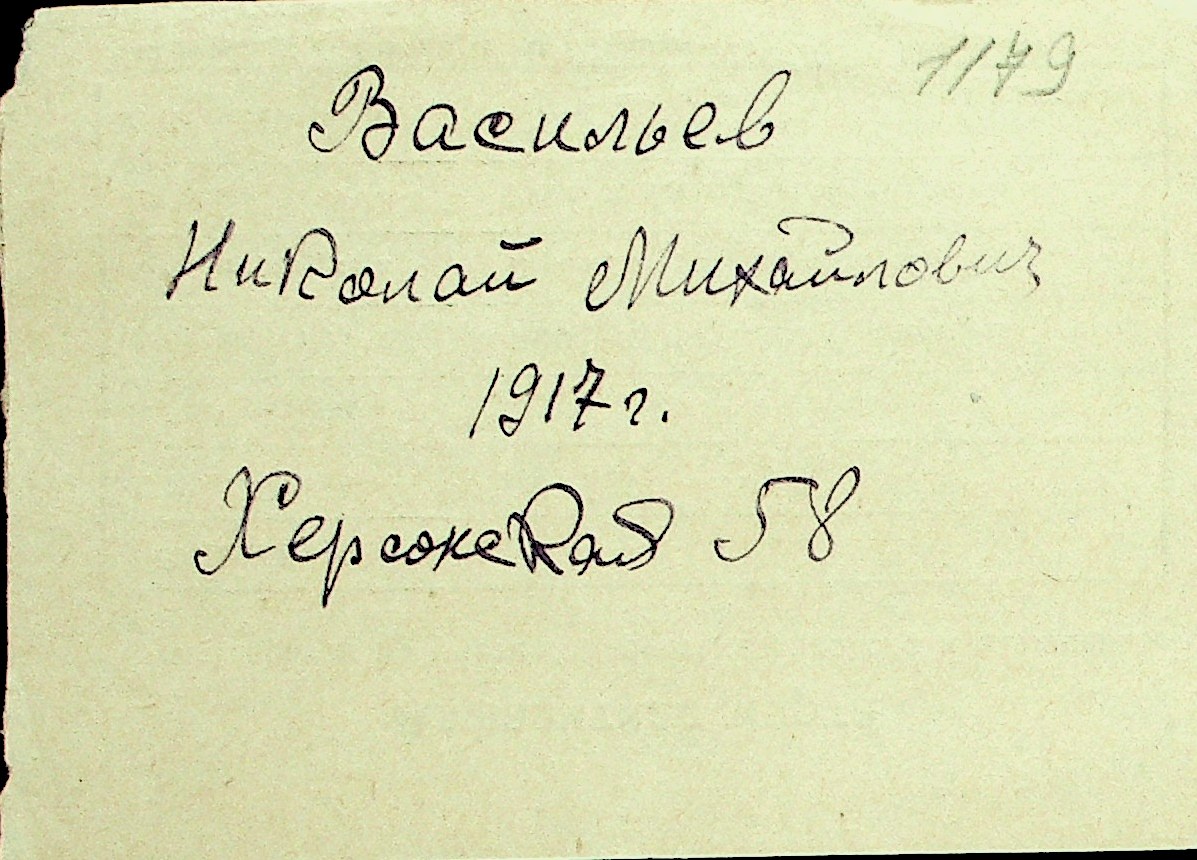 1179
Васильев
Николай Михайлович
1917 г.
Херсонская 58